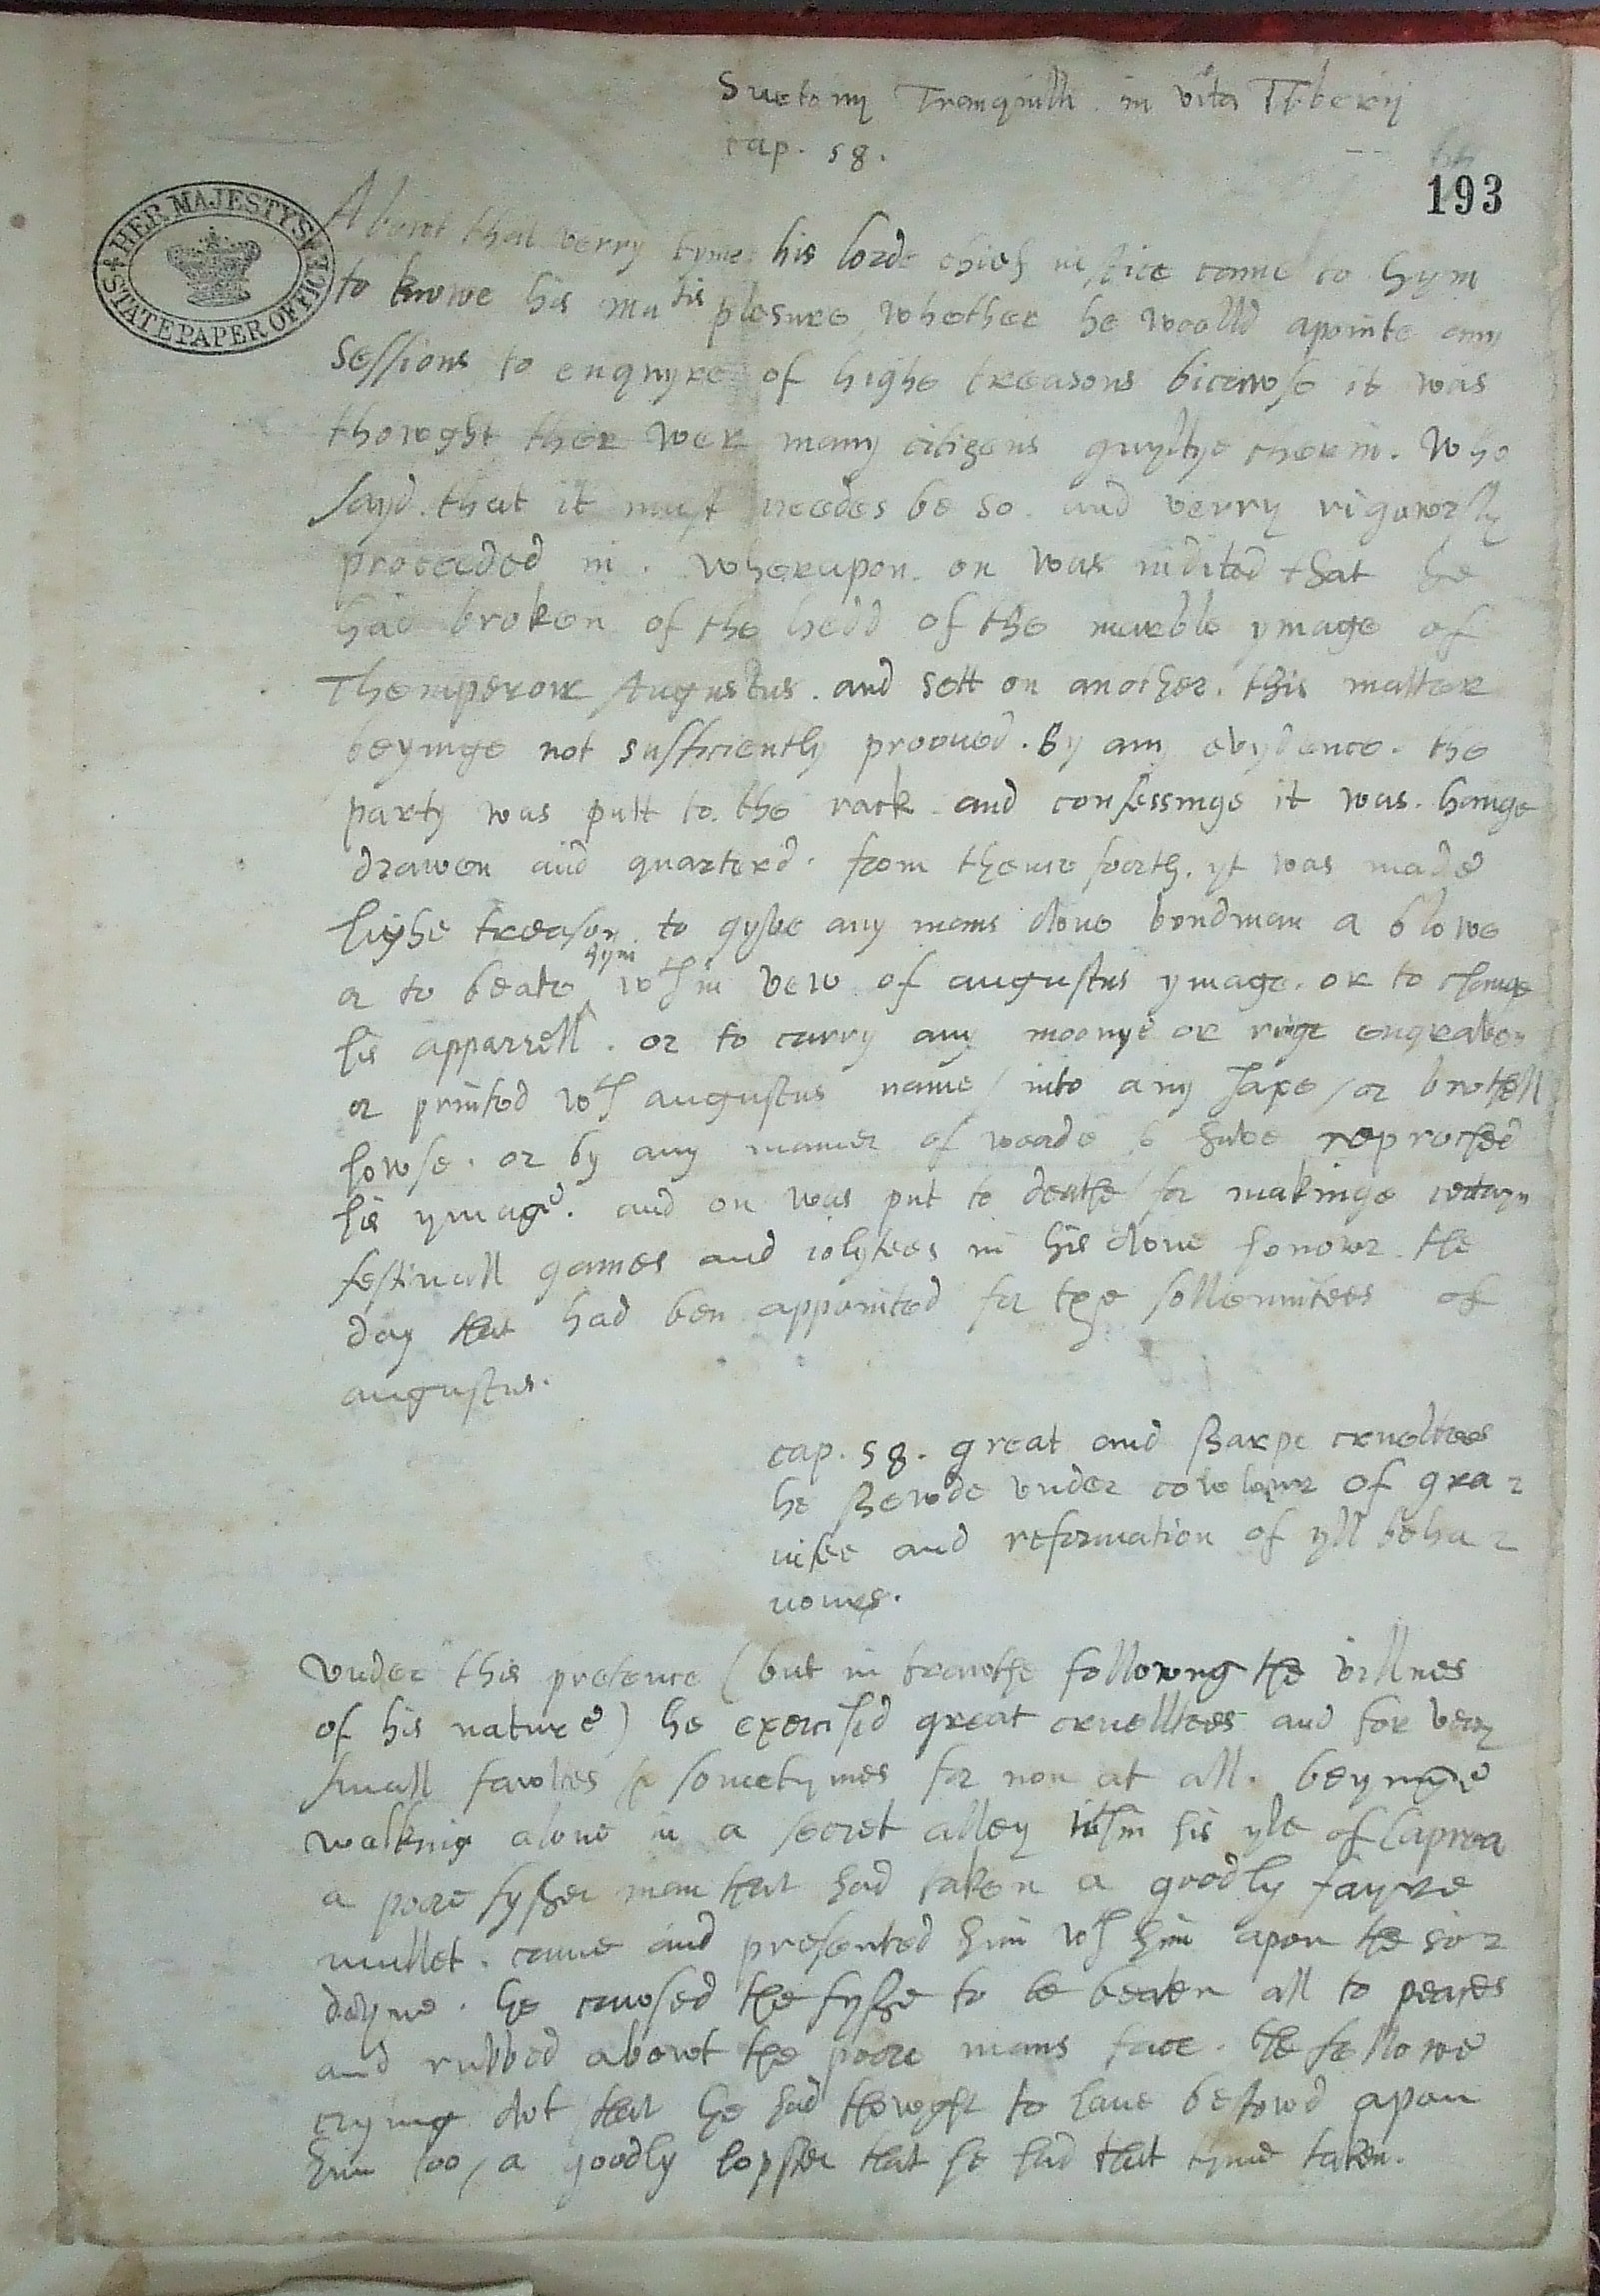 Suetonij Tranquilli in vita Tiberij
cap. 58.
193
HER MAJESTY'S STATE PAPER OFFICE
About that verry tyme his lorde chief iustice came to hym
to knowe his matis plesure whether he woolld apointe any
Sessions to enquyre of highe treasons bicawse it was
thowght ther wer many citizens guyltye therin. Who
sayd that it must needes be so and verry rigoworsly
proceeded in. wherupon on was indited that he
had broken of the hedd of the marble ymage of
Themperour Augustus. and sett on another. this matter
beyinge not sufficiently prooued. By any evydence. the
party was putt to the rack and confessinge it was. hange
drawen and quarterd. from thence foorth. yt was made
highe treason to gyve any mans owne bondman a blowe
or to beate hym wth in vew of augustus ymage. or to change
his apparrell. or to carry any moonye or ringe engraven
or printed wth augustus name / into any Jaxe / or brothell
howse. or by any maner of woorde to have reproched
his ymage. and on was put to deathe / for makinge certayn
festivall games and iolytees in his owne honowr. the
day that had ben appointed for the sollemnitees of
augustus.
cap. 58. great and sharpe crueltees
he shewde under cowlowr of gra=
vitee and reformation of yll beha=
uours.
Under this pretence (but in trewthe following the villnes
of his nature) he exercised great cruelltees and for very
small fawltes & sometymes for non at all. beyinge
walking alone in a secret alley wthin his yle of Caprea
a poore fyssher man that had taken a goodly fayre
mullet. came and presented him wth him apon the so=
dayne. he cawsed the fysshe to be beaten all to peaces
and rubbed abowt the poore mans face. the fellowe
crying owt that he had thowght to have bestowd apon
him too, a goodly lopster that he had that tyme taken.